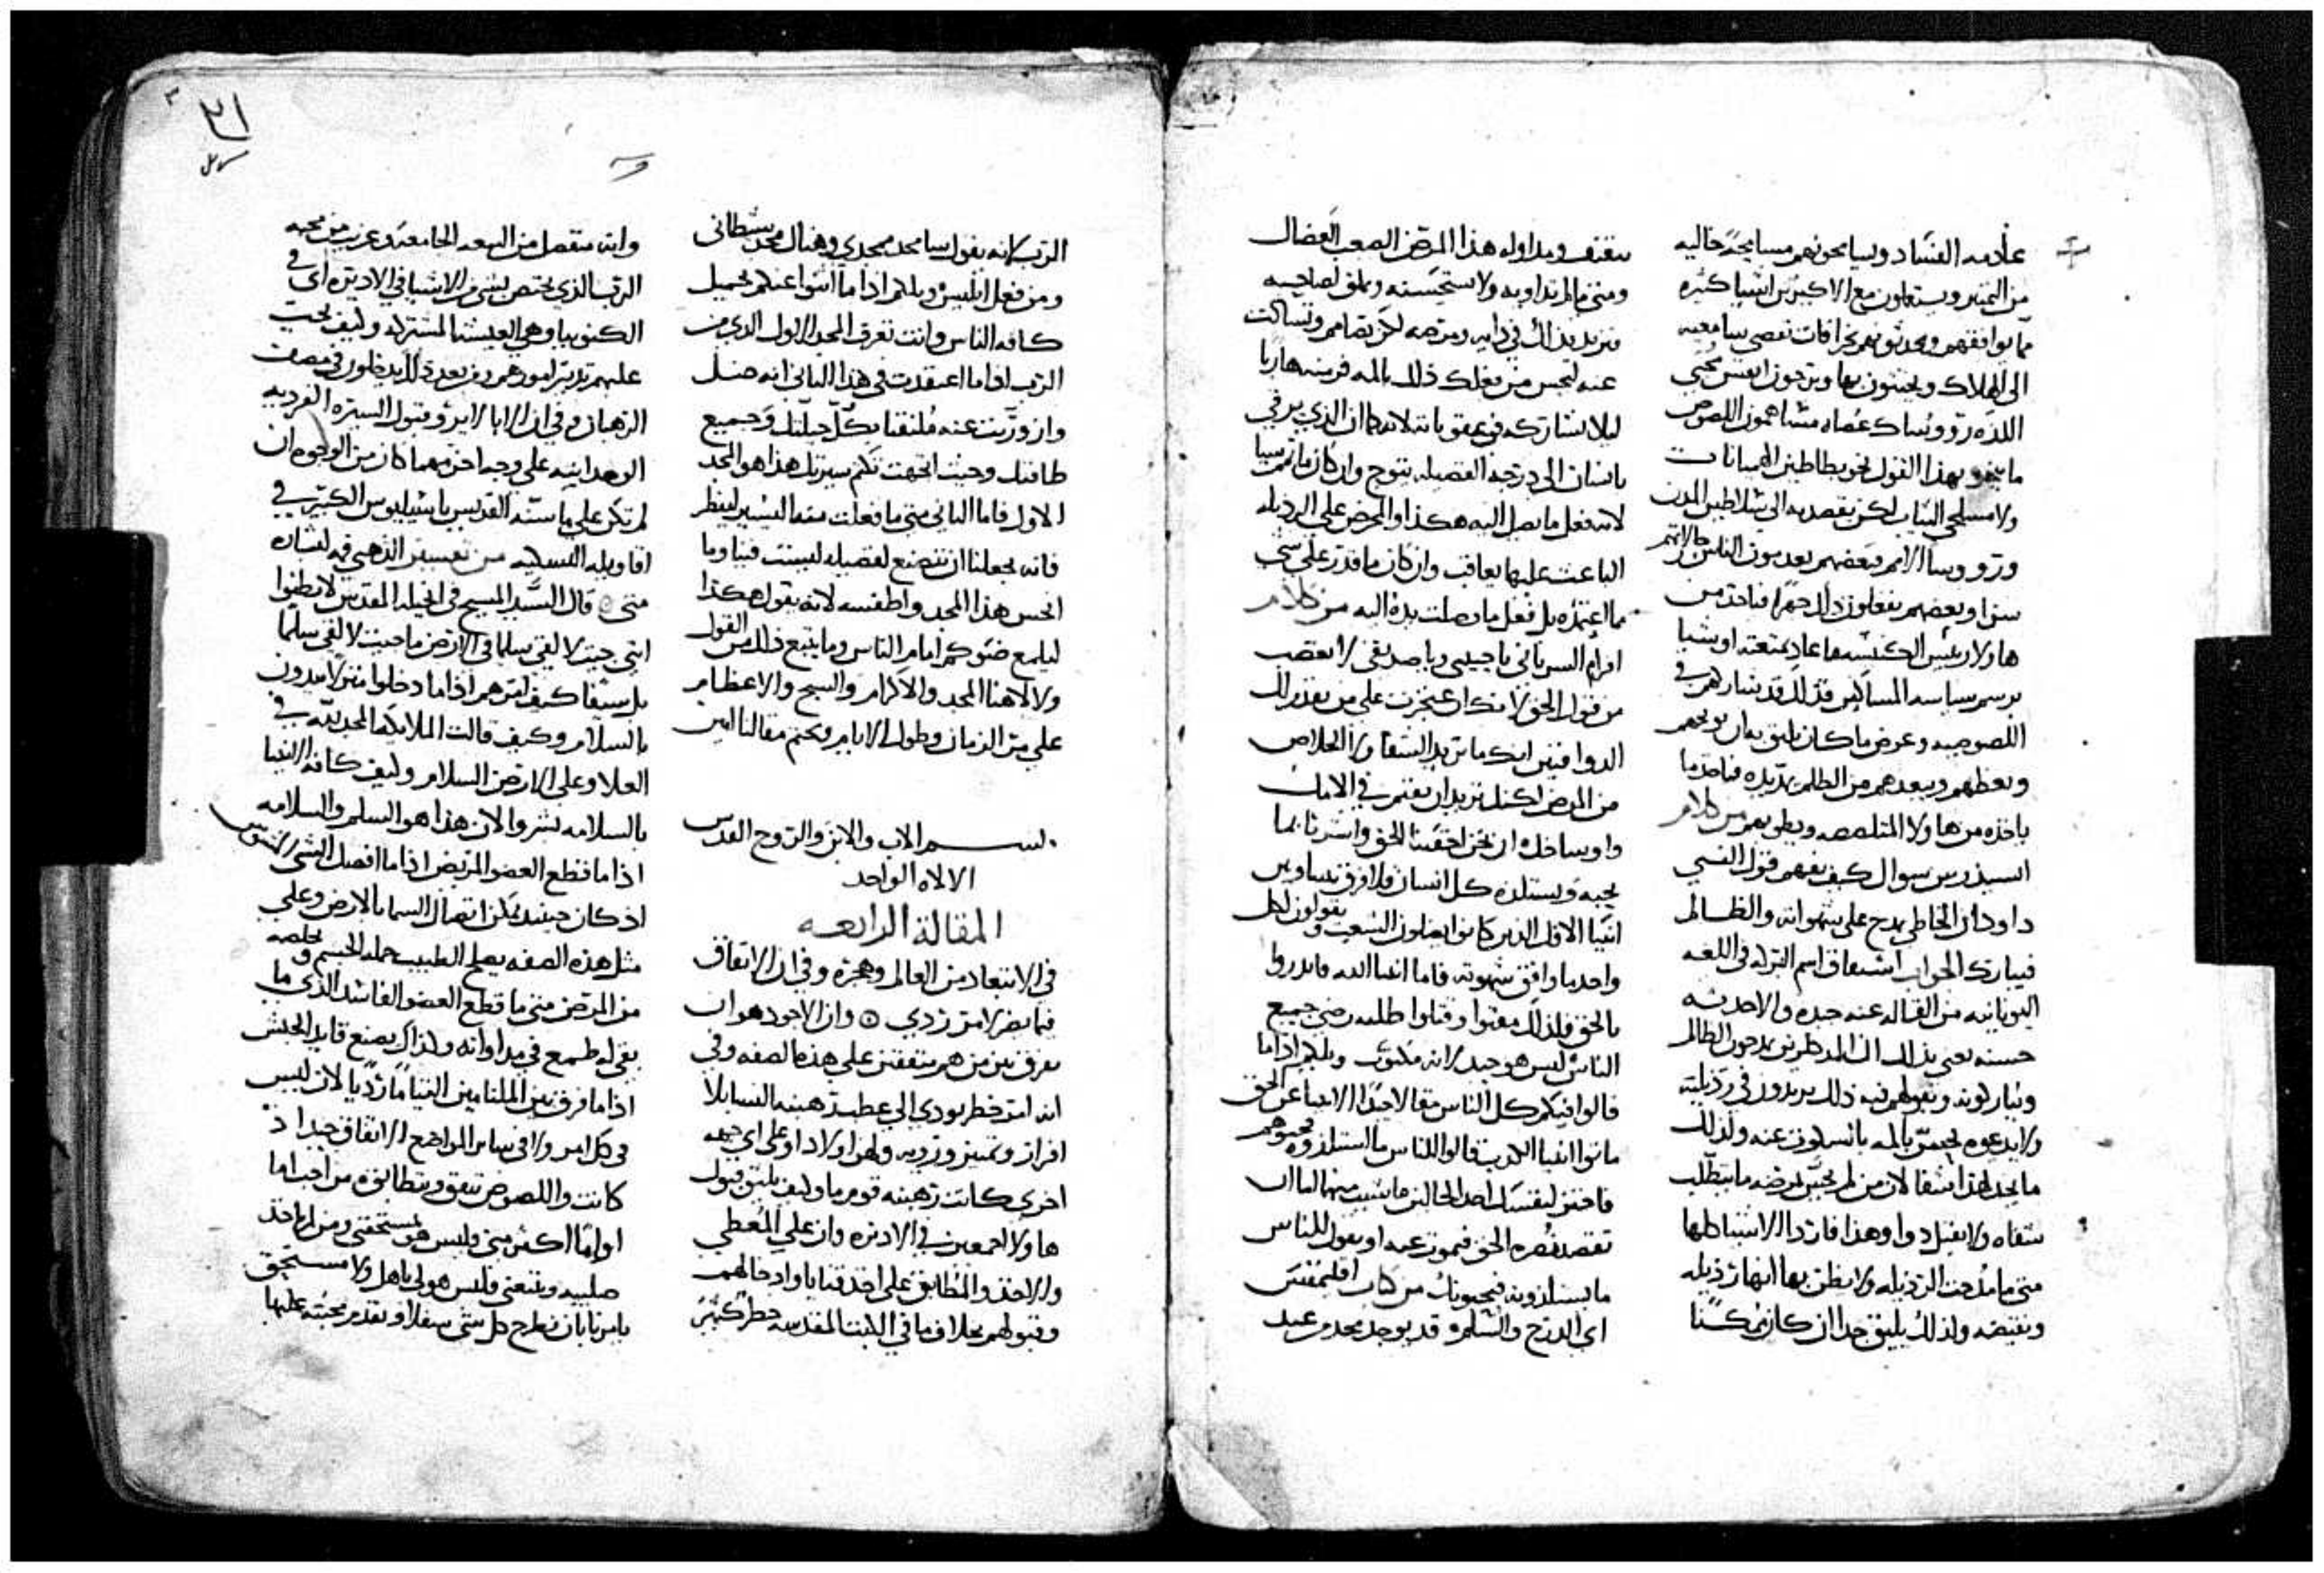 علامه الفساد وسيامحونهم مسامحةً خاليه
من التمييز ويستعلون مع الاكبرين اشيا كثيره
مما يوافقهم ويحدثونهم بخرافات تفضي بسامعيه
الى الهلاك
ما ينحو بهذا القول نحو
ولا مسلحي الثياب لكن نقصد به الى سلاطين المدن
وروسا الامم وبعضهم يعدمون الناس
سرا وبعضهم يفعلون ذلك جهرًا فياخذ من
هاولا رئيس الكنيسه
برسم سياسه المساكين فذلك قد يشاركهم في
اللصوصيه وعوض ما كان يليق به ان يوبخهم
ويعظهم ويبعدهم من الظلم
ياخذه من هاولا المتلصصه ويطريهم من كلام
ايسيذرس سوال كيف نفهم قول النبي
داود ان الخاطي يمدح على شهواته والظالم
فيبارك الجواب اشتقاق اسم البركه في اللغه
اليونانيه من القاله عنه جيده والاحدثه
حسنه يعني بذلك ان المذكورين يمدحون الظالم
ويباركونه وبقولهم فيه ذلك يزيدون في رذيلته
ولا يدعوه يحس بالمه
ما يجد لهذا شفا لان من لم يحس بمرضه ما يتطلب
شفاه ولا يقبل دوا وهذا
متى ما مدحت الرذيله ولا يظن بها انها رذيله
ونقيضه ولذلك يليق جدا ان كان ممكنًا
ومداواه هذا المرض الصعب العضال
ومتى ما لم تداويه ولا تستحسنه وتملق لصاحبه
فتزيد بذلك في دايه ومرضه لكن تصامم وتساكت
عنه ليحس من فعلك ذلك بالمه فر منه هاربا
ليلا تشاركه في عقوباته لانه كما ان الذي يرقي
بانسان الى درجه الفضيله يتوج وان كان ما تمم شيا
لانه فعل ما يصل اليه هكذا والمحرض على الرذيله
الباعث عليها يعاقب وان كان ما قدر على شي
مما اعتمده بل فعل ما وصلت يده اليه من كلام
افرام السرياني يا حبيبي ويا صديقي لا تغضب
من قول الحق لانك ان ضجرت على من يقدم لك
الدوا فبين انك ما تريد الشفا ولا الخلاص
من المرض لكنك تريد ان تقيم في الالام
واوساخك ان نحن اخفينا الحق واشرنا بما
يحبه ويستلذه كل انسان فلا فرق بيننا وبين
انبيا الافك الذين كانوا يضلون الشعب ويقولون لكل
واحد ما وافق شهوته فاما انبيا الله فانذروا
بالحق فلذلك مقتوا وقتلوا طلبه رضى جميع
الناس ليس هو جيد لانه مكتوب ويلكم اذا ما
قالوا فيكم كل الناس مقالا جيدًا الانبيا عن الحق
ماتوا انبيا الكذب قالوا للناس ما استلذوه فحبوهم
فاختر لنفسك احد الحالين ما شيت منهما اما ان
تقصد نصره الحق فيموت عنه او تقول للناس
ما يستلذونه فيحبونك من كتاب اقليمقس
اي الدرج والسلم وقد يوجد مجد من عند
الرب لانه يقول سامجد ممجدي وهناك مجد شيطاني
ومن فعل ابليس ويلكم اذا ما اثنوا عنكم بجميل
كافه الناس وانت تعرف المجد الاول الذي من
الرب اذا ما اعتقدت في هذا الثاني انه ضلل
وازورّيت عنه ملتفتا بكل حيلتك وجميع
طاقتك وحيث اتجهت تكتم سيرتك هذا هو المجد
الاول فاما الثاني متى ما فعلت منه اليسير لينظر
فانه يجعلنا ان نتصنع لفضيله ليست فينا وما
انحس هذا المجد واطفسه لانه يقول هكذا
ليلمع ضوكم امام الناس وما يتبع ذلك من القول
ولالاهنا المجد والاكرام والسبح والاعظام
على مر الزمان وطول الايام ونختم مقالنا امين
بسم الاب والابن والروح القدس
الالاه الواحد
المقالة الرابعه
في الابتعاد من العالم وهجره وفي ان الاتفاق
فيما يضر لامر ردي وان الاجود هو ان
يفرق بين من هم متفقين على هذه الصفه وفي
انه امر خطر يودي الى عطب
افراز وتمييز ورويه ولهن اولاد او على اي جهه
اخرى كانت رهبنه قوم ما وكيف يليق قبول
هاولا اجمعين في الاديره وان على المعطي
والاخذ والمطابق على اخذ قنايا وادخالهم
وقبولهم بخلاف ما في الكتب المقدسه خطر كبير
وانه منفصل من البيعه الجامعه وغريب من محبه
الرب الذي يختص بشي من الاشيا في الاديره اي في
الكنوبيا وهي العيشه المشتركه وكيف يجب
عليهم تدبير امورهم ومن بعد ذلك يدخلون في مصاف
الرهبان وفي ان الابا لا يروا قبول السيره الفرديه
الوحدانيه على وجه اخر مهما كان من الوجوه ان
لم تكن على ما سنه القديس باسيليوس الكبير في
اقاويله النسكيه من تفسير الذهبي فمه لبشاره
متى قال السيد المسيح في انجيله المقدس لا تظنوا
انني جيت لالقي سلما في الارض ما جيت لالقي سلما
بل سيفا كيف امرهم اذا ما دخلوا منزلا يبدون
بالسلام وكيف قالت الملايكه المجد لله في
العلا وعلى الارض السلام وكيف كافه الانبيا
بالسلامه بشروا الان هذا هو السلم والسلامه
اذا ما قطع العضو المريض اذا ما افصل الشي
اذ كان حينيذ يمكن اتصال السما بالارض وعلى
مثل هذه الصفه يصلح الطبيب جمله الجسم ويخلصه
من المرض متى ما قطع العضو الفاسد الذي ما
بقي له طمع في مداواته وكذلك يصنع قايد الجيش
اذا ما فرق بين الملتامين التياما رديا لان ليس
في كل امر ولا في ساير المواضع الاتفاق جيد اذ
كانت واللصوص تتفق وتتطابق من احب اما
او امًا اكثر مني فليس هو يستحقني ومن لم ياخذ
صليبه ويتبعني فليس هو لي باهل ولا مستحق
يامرنا بان نطرح كل شي سفلا ونقدم محبته عليها